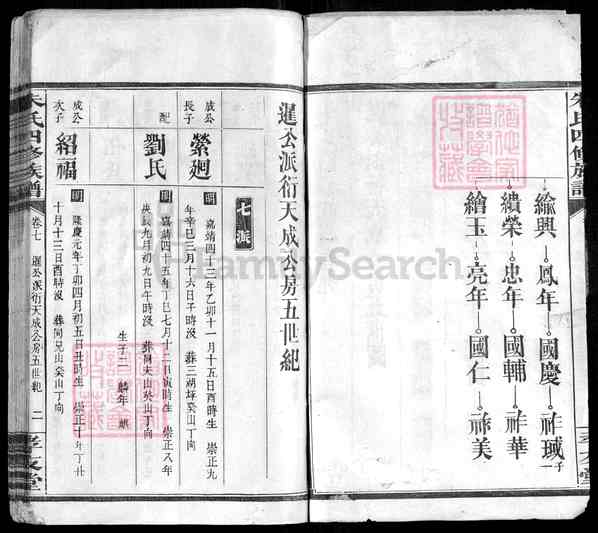 朱氏四修族譜
綸興 鳳年 國慶 祚珹 一子
績榮 忠年 國輔 祚華
繪玉 亮年 國仁 祚美
暹公派衍天成公房五世紀
七派
成公長子 縈廻 明 嘉靖四十三年乙卯十一月十五日酉時生 崇正九
年辛巳三月十六日子時沒 葬三湖垿癸山丁向
配 劉氏 明 嘉靖四十五年丁巳七月十二日寅時生 崇正八年
庚辰九月初九日午時沒 葬 山癸山丁向
生子二 麟年 麒
成公次子 紹福 明 隆慶元年丁卯四月初五日丑時生 崇正十年丁丑
十月十三日酉時沒 葬同兄山癸山丁向
朱氏四修族譜 卷七 暹公派衍天成公房五世紀 二 孝友堂
FamilySearch